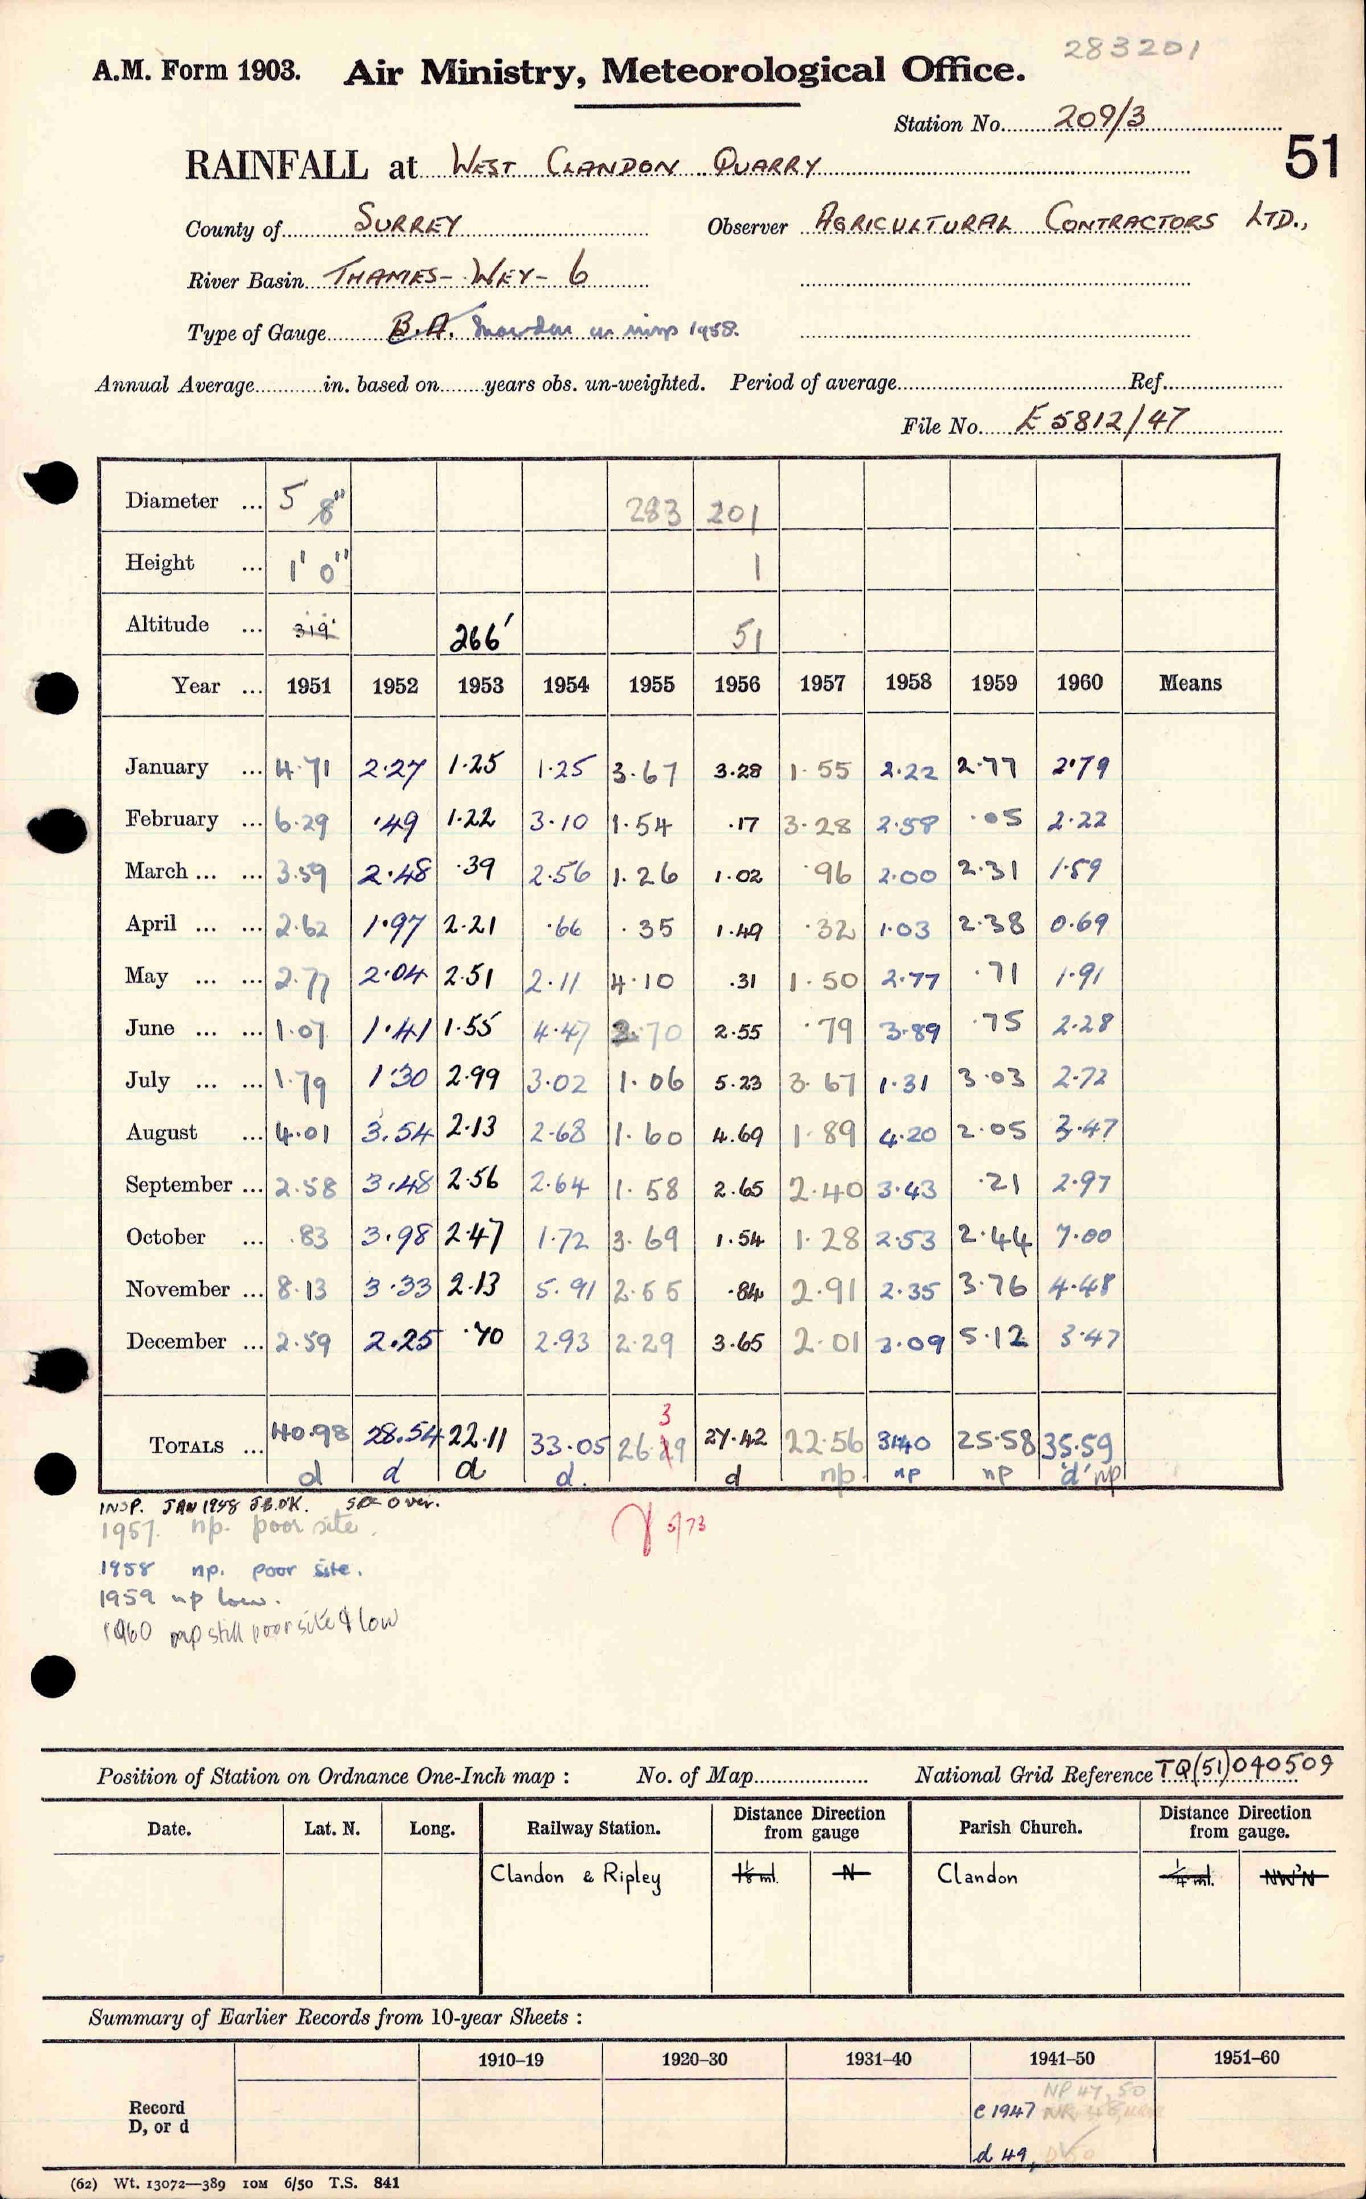 283201
A.M. Form 1903. Air Ministry, Meteorological Office.
Station No. 209/3
51
RAINFALL at WEST CLANDON QUARRY
County of SURREY Observer AGRICULTURAL CONTRACTORS LTD.,
River Basin THAMES - WEY - 6
Type of Gauge B.A. Snowdon 1958.
Annual Average in. based on years obs. un-weighted. Period of average Ref.
File No. E 5812/47
Diameter ... 5 8" 283 201
Height ... 1' 0" 1
Altitude ... 319' 266' 51
Year ... 1951 1952 1953 1954 1955 1956 1957 1958 1959 1960 Means
January ... 4.71 2.27 1.25 1.25 3.67 3.28 1.55 2.22 2.77 2.79
February ... 6.29 .49 1.22 3.10 1.54 .17 3.28 2.58 .05 2.22
March ... ... 3.59 2.48 .39 2.56 1.26 1.02 .96 2.00 2.31 1.59
April ... ... 2.62 1.97 2.21 .66 .35 1.49 .32 1.03 2.38 0.69
May ... ... 2.77 2.04 2.51 2.11 4.10 .31 1.50 2.77 .71 1.91
June ... ... 1.07 1.41 1.55 4.47 2.70 2.55 .79 3.89 .75 2.28
July ... ... 1.79 1.30 2.99 3.02 1.06 5.23 3.67 1.31 3.03 2.72
August ... 4.01 3.54 2.13 2.68 1.60 4.69 1.89 4.20 2.05 3.47
September ... 2.58 3.48 2.56 2.64 1.58 2.65 2.40 3.43 .21 2.97
October ... .83 3.98 2.47 1.72 3.69 1.54 1.28 2.53 2.44 7.00
November ... 8.13 3.33 2.13 5.91 2.55 .84 2.91 2.35 3.76 4.48
December ... 2.59 2.25 .70 2.93 2.29 3.65 2.01 3.09 5.12 3.47
3
TOTALS ... 40.98 28.54 22.11 33.05 26.29 27.42 22.56 31.40 25.58 35.59
d d d d. d np np np 'd' np
INSP. JAN 1958 See Over.
1957. np. poor site. 5/73
1958 np. poor site.
1959 np low.
1960 np still poor site & low
Position of Station on Ordnance One-Inch map : No. of Map National Grid Reference TQ(51)040509
Date. Lat. N. Long. Railway Station. Distance Direction from gauge Parish Church. Distance Direction from gauge.
Clandon & Ripley 1⅛ ml. N Clandon ¼ ml. NW'N
Summary of Earlier Records from 10-year Sheets :
1910–19 1920–30 1931–40 1941–50 1951–60
Record D, or d
NP 47, 50
c 1947
d 49,
(62) Wt. 13072—389 10M 6/50 T.S. 841